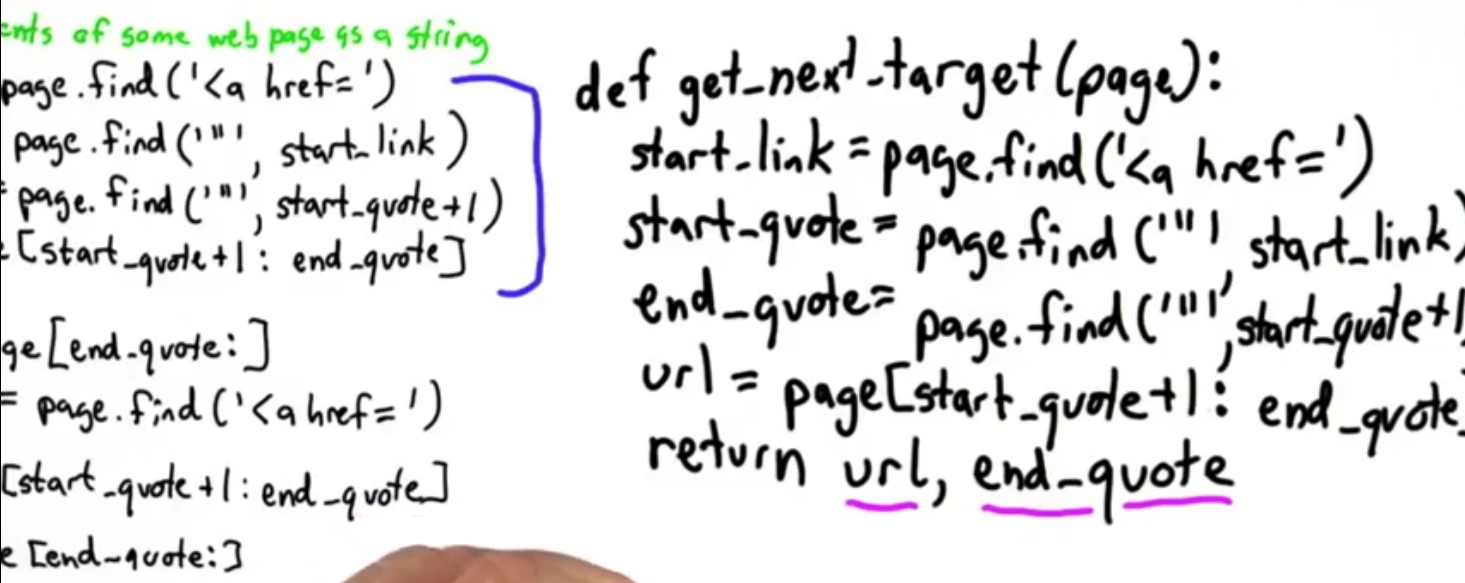 ents of some web page as a string
page.find('<a href=')
page.find('"', start_link)
= page.find('"', start_quote+1)
[start_quote+1: end_quote]
ge[end_quote:]
= page.find('<a href=')
[start_quote+1: end_quote]
e[end_quote:]
def get_next_target(page):
start_link = page.find('<a href=')
start_quote = page.find('"', start_link)
end_quote = page.find('"', start_quote+1
url = page[start_quote+1: end_quote]
return url, end_quote